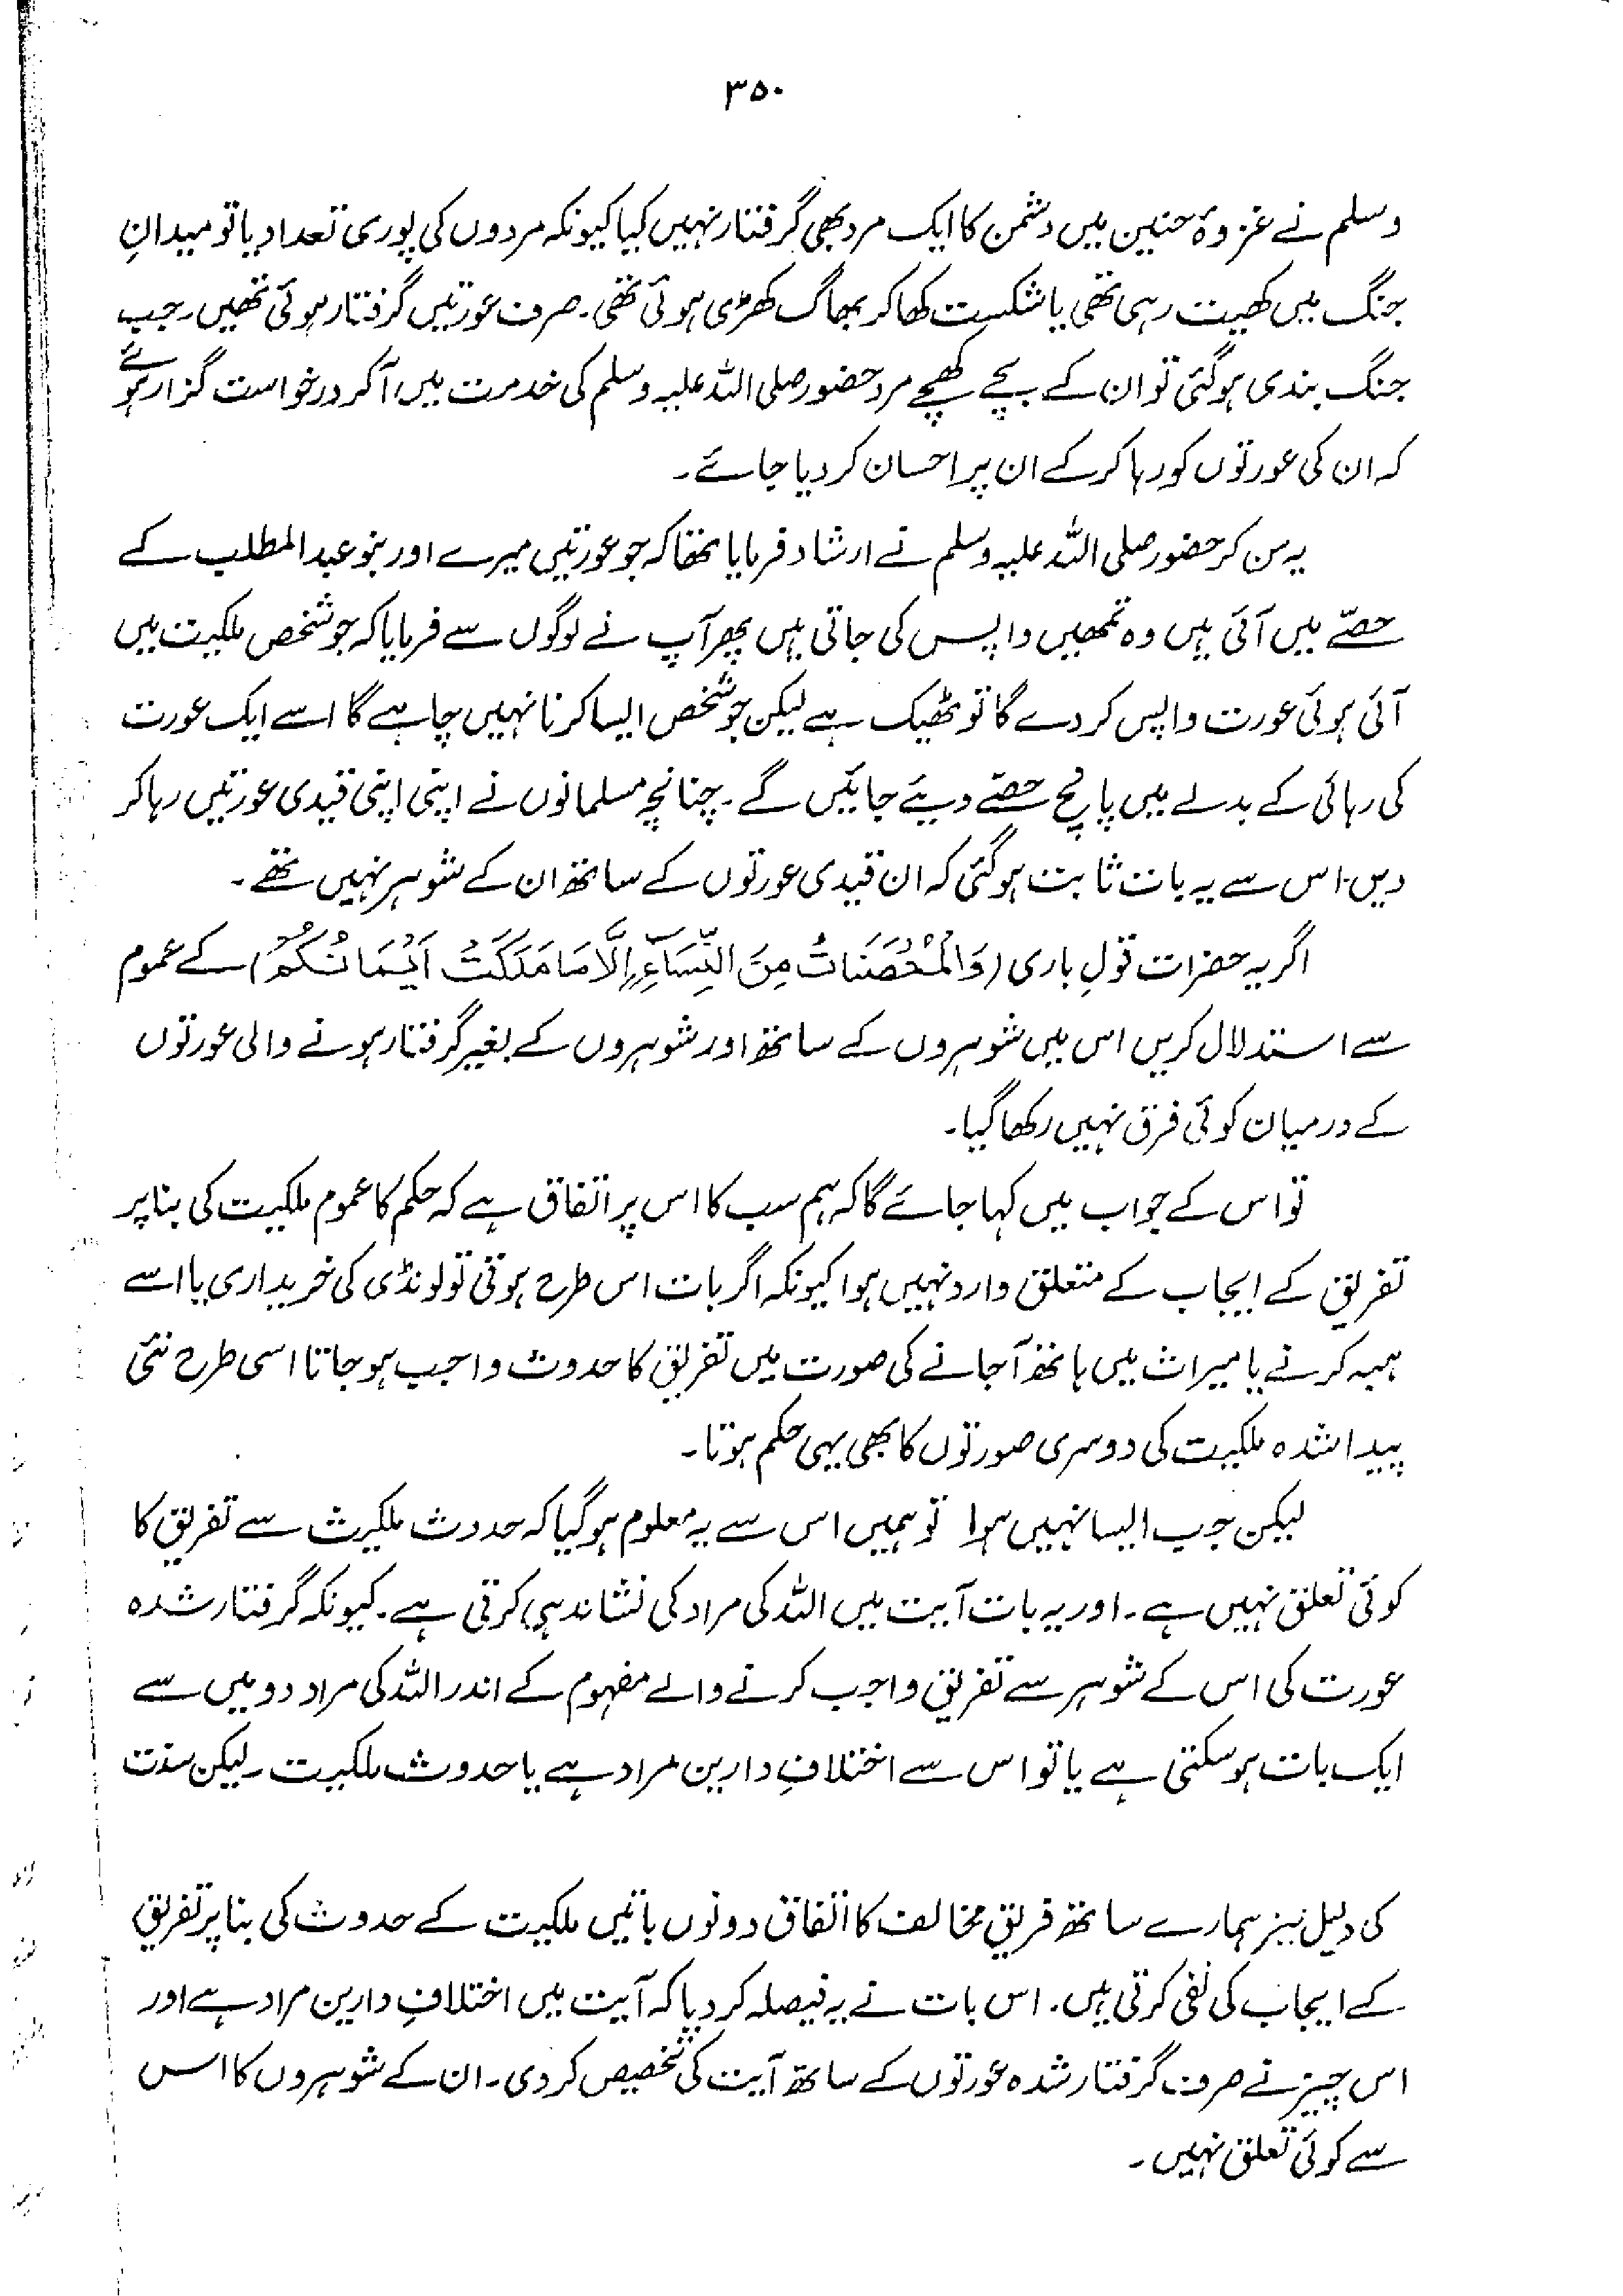 ۳۵۰
وسلم نے غزوۂ حنین میں دشمن کا ایک مرد بھی گرفتار نہیں کیا کیونکہ مردوں کی پوری تعداد یا تو میدانِ
جنگ میں کھیت رہی تھی یا شکست کھا کر بھاگ کھڑی ہوئی تھی۔ صرف عورتیں گرفتار ہوئی تھیں۔ جب
جنگ بندی ہوگئی تو ان کے بچے کھچے مرد حضور صلی اللہ علیہ وسلم کی خدمت میں آکر درخواست گزار ہوئے
کہ ان کی عورتوں کو رہا کرکے ان پر احسان کر دیا جائے۔
یہ سن کر حضور صلی اللہ علیہ وسلم نے ارشاد فرمایا تھا کہ جو عورتیں میرے اور بنو عبدالمطلب کے
حصّے میں آئی ہیں وہ تمھیں واپس کی جاتی ہیں پھر آپ نے لوگوں سے فرمایا کہ جو شخص ملکیت میں
آئی ہوئی عورت واپس کر دے گا تو ٹھیک ہے لیکن جو شخص ایسا کرنا نہیں چاہے گا اسے ایک عورت
کی رہائی کے بدلے میں پانچ حصّے دیئے جائیں گے۔ چنانچہ مسلمانوں نے اپنی اپنی قیدی عورتیں رہا کر
دیں۔ اس سے یہ بات ثابت ہوگئی کہ ان قیدی عورتوں کے ساتھ ان کے شوہر نہیں تھے۔
اگر یہ حضرات قولِ باری (وَالْمُحْصَنَاتُ مِنَ النِّسَآءِ اِلَّا مَا مَلَكَتْ اَيْمَانُكُمْ) کے عموم
سے استدلال کریں اس میں شوہروں کے ساتھ اور شوہروں کے بغیر گرفتار ہونے والی عورتوں
کے درمیان کوئی فرق نہیں رکھا گیا۔
تو اس کے جواب میں کہا جائے گا کہ ہم سب کا اس پر اتفاق ہے کہ حکم کا عموم ملکیت کی بنا پر
تفریق کے ایجاب کے متعلق وارد نہیں ہوا کیونکہ اگر بات اس طرح ہوتی تو لونڈی کی خریداری یا اسے
ہبہ کرنے یا میراث میں ہاتھ آجانے کی صورت میں تفریق کا حدوث واجب ہو جاتا اسی طرح نئی
پیدا شدہ ملکیت کی دوسری صورتوں کا بھی یہی حکم ہوتا۔
لیکن جب ایسا نہیں ہوا تو ہمیں اس سے یہ معلوم ہوگیا کہ حدوث ملکیت سے تفریق کا
کوئی تعلق نہیں ہے۔ اور یہ بات آیت میں اللہ کی مراد کی نشاندہی کرتی ہے۔ کیونکہ گرفتار شدہ
عورت کی اس کے شوہر سے تفریق واجب کرنے والے مفہوم کے اندر اللہ کی مراد دو میں سے
ایک بات ہوسکتی ہے یا تو اس سے اختلافِ دارین مراد ہے یا حدوث ملکیت۔ لیکن سنت
کی دلیل نیز ہمارے ساتھ فریق مخالف کا اتفاق دونوں باتیں ملکیت کے حدوث کی بنا پر تفریق
کے ایجاب کی نفی کرتی ہیں۔ اس بات نے یہ فیصلہ کر دیا کہ آیت میں اختلافِ دارین مراد ہے اور
اس چیز نے صرف گرفتار شدہ عورتوں کے ساتھ آیت کی تخصیص کر دی۔ ان کے شوہروں کا اس
سے کوئی تعلق نہیں۔